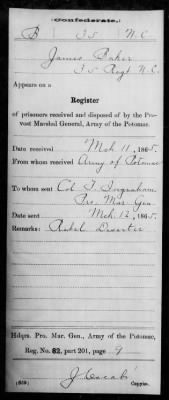 Confederate.
B 35 N.C.
James Baker
35 Regt N.C.
Appears on a
Register
of prisoners received and disposed of by the Pro-
vost Marshal General, Army of the Potomac.
Date received Mch 11, 1865.
From whom received Army of Potomac
To whom sent Col T. Ingraham,
Pro. Mar. Gen.
Date sent Mch 12, 1865.
Remarks: Rebel Deserter
Hdqrs. Pro. Mar. Gen., Army of the Potomac,
Reg. No. 82, part 201, page 9
(639) Copyist.